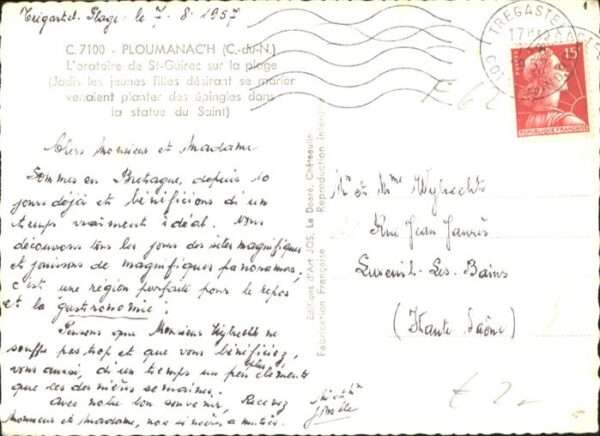 Trégastel. Plage. le 7. 8. 1957
C. 7100 - PLOUMANAC'H (C.-du-N.)
L'oratoire de St-Guirec sur la plage
(Jadis les jeunes filles désirant se marier
venaient planter des épingles dans
la statue du Saint)
Chers Monsieur et Madame.
Sommes en Bretagne, depuis 10
jours déjà et bénéficions d'un
temps vraiment idéal. Nous
découvrons tous les jours des sites magnifiques
et jouissons de magnifiques panoramas.
c'est une région parfaite pour le repos
et la gastronomie!
Pensons que Monsieur ne
souffre pas trop et que vous bénéficiez,
vous aussi, d'un temps un peu plus clément
que ces dernières semaines.
Avec notre bon souvenir, Recevez
Monsieur et Madame, nos amitiés
Editions d'Art JOS. Le Doaré, Châteaulin
Fabrication Française - Reproduction Interdite
TREGASTEL
17H
POSTES
15F
REPUBLIQUE FRANÇAISE
Mr et Mme
Rue Jean Jaurès
Luxeuil-Les-Bains
(Haute Saône)